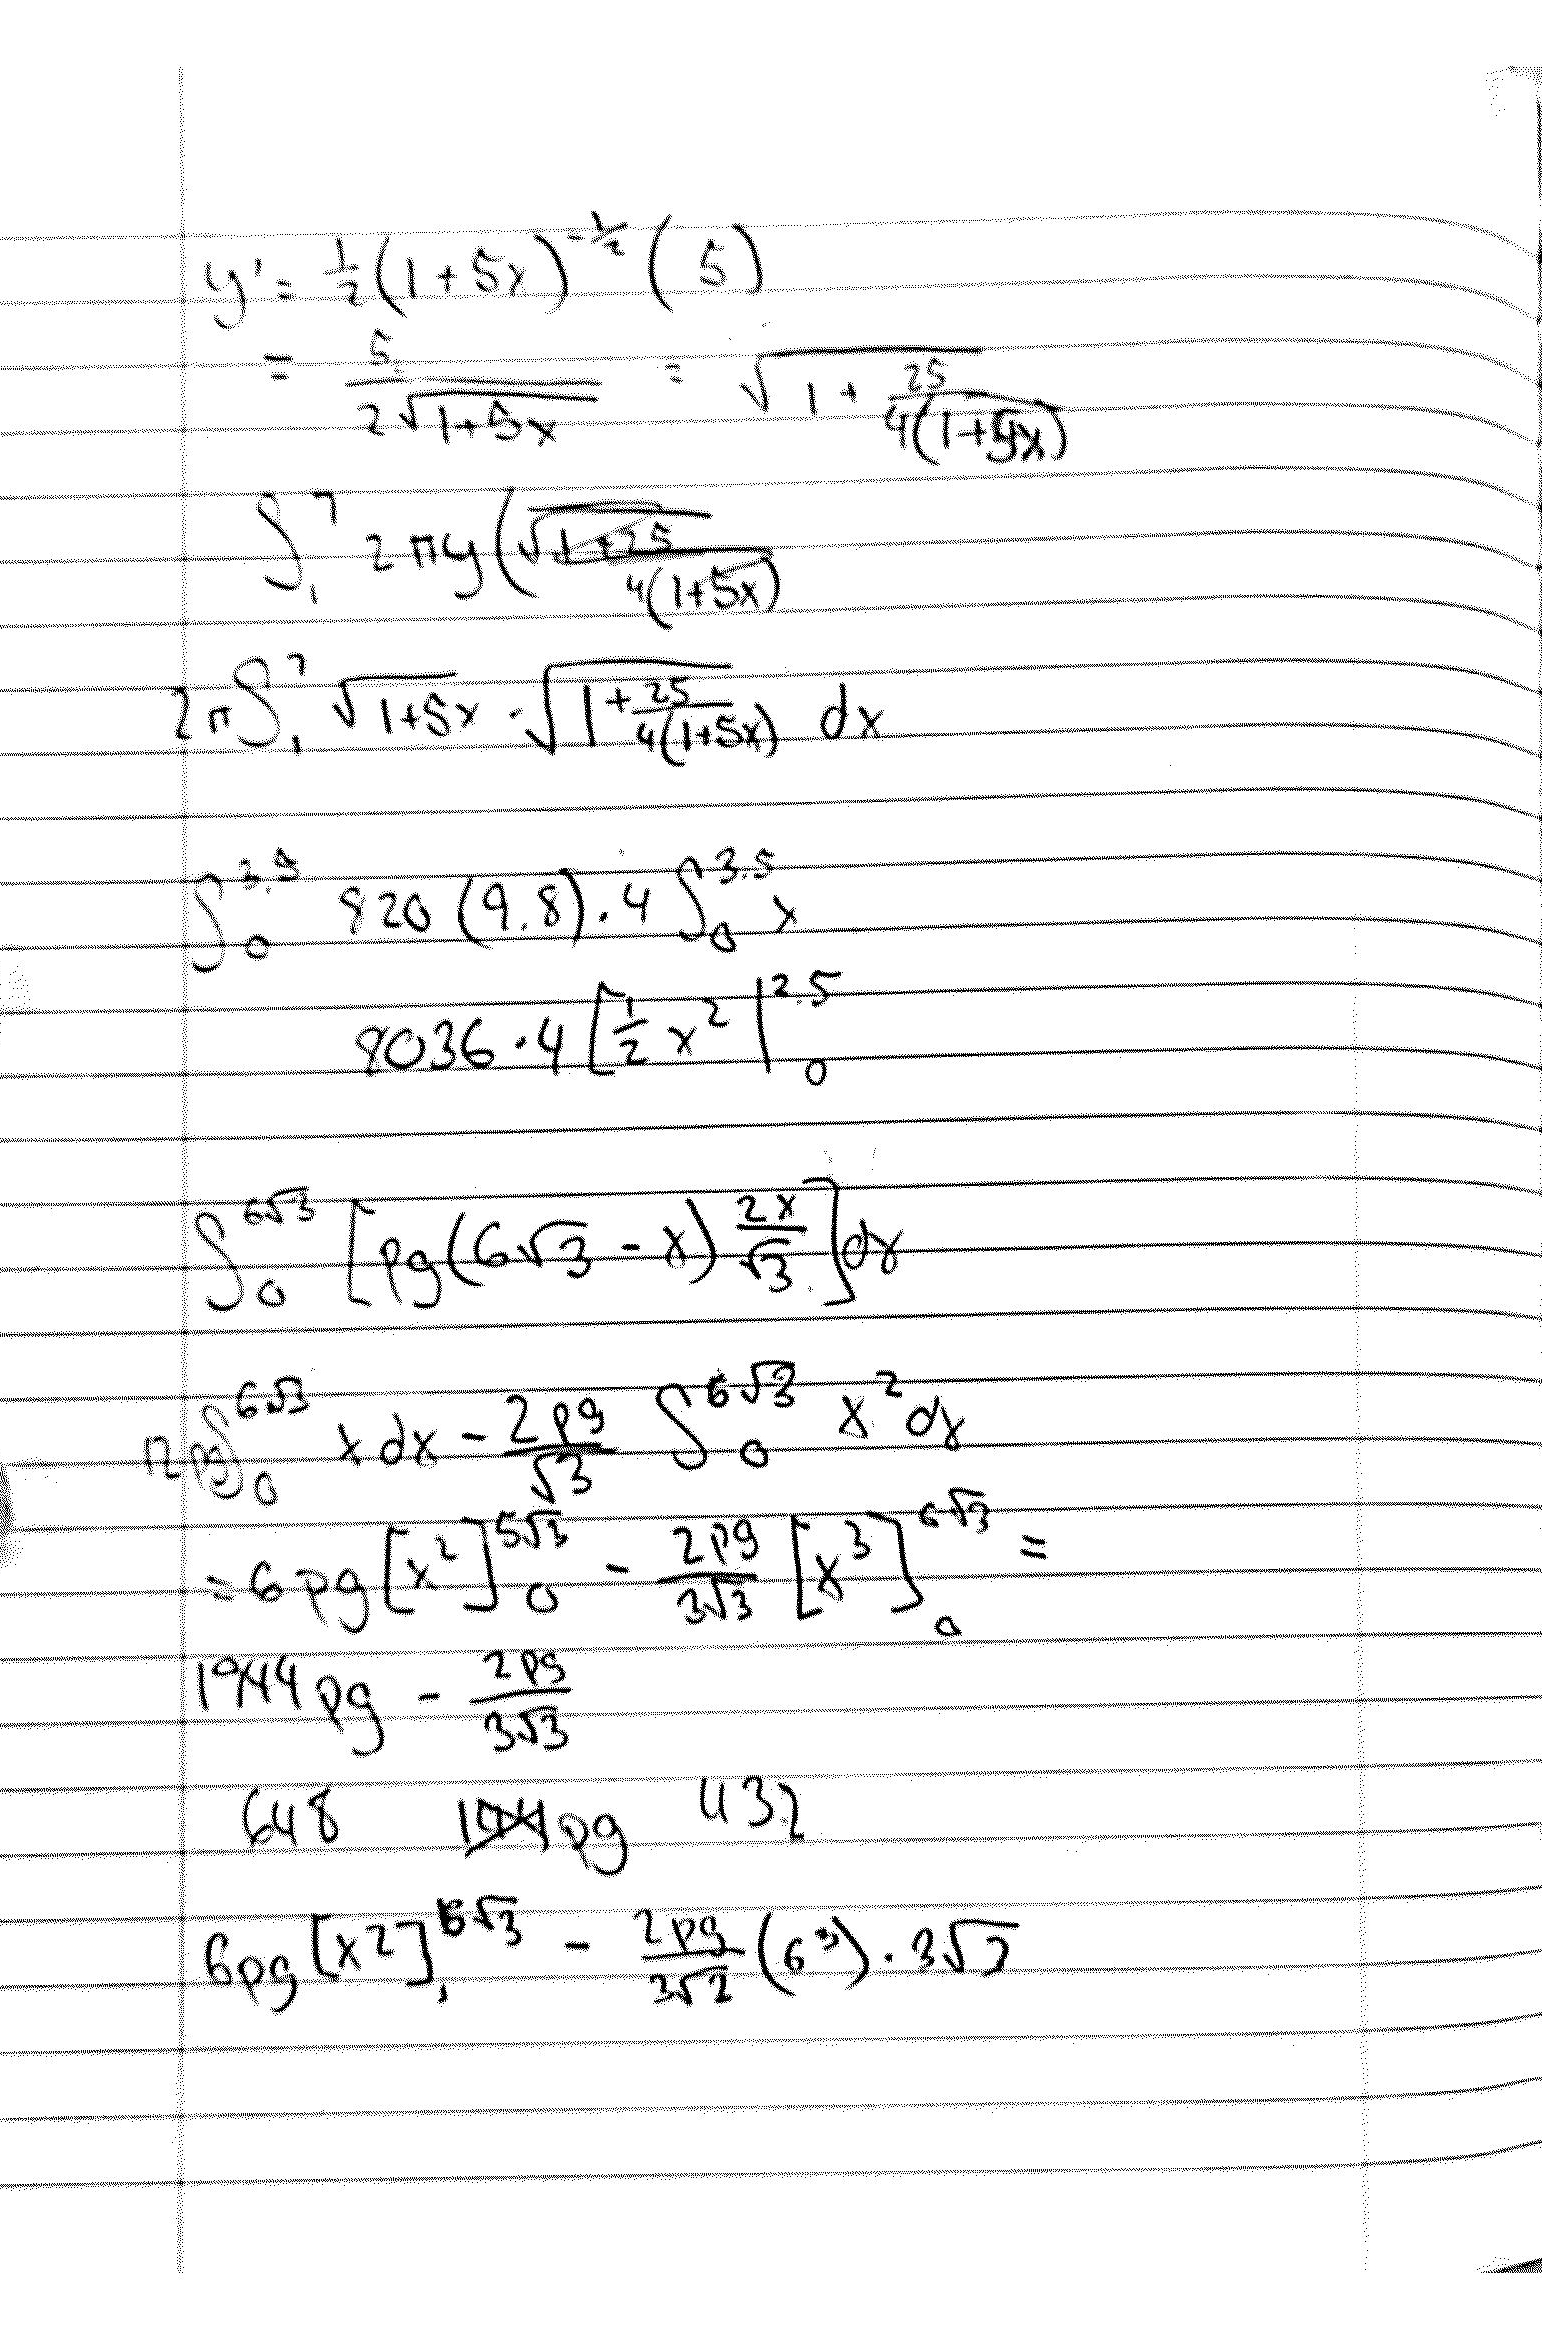 y' = 1/2 (1+5x)^(-1/2) (5)
= 5/(2√(1+5x)) = √(1 + 25/(4(1+5x)))
∫₁⁷ 2πy(√(1+25/(4(1+5x)))
2π∫₁⁷ √(1+5x) · √(1 + 25/(4(1+5x))) dx
∫₀^3.5 820 (9.8) · 4 ∫₀^3.5 x
8036 · 4 [1/2 x² |₀^2.5
∫₀^(6√3) [pg(6√3 - x) 2x/√3] dx
12pg∫₀^(6√3) x dx - 2pg/√3 ∫₀^(6√3) x² dx
= 6pg[x²]₀^(6√3) - 2pg/(3√3) [x³]₀^(6√3) =
1944pg - 2pg/(3√3)
648 pg 432
6pg[x²]₁^(6√3) - 2pg/(3√3) (6³) · 3√3